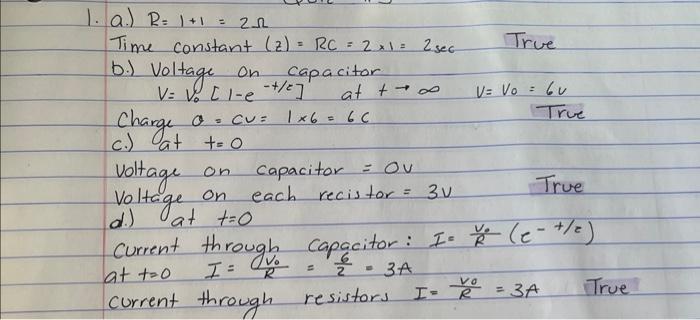 1. a.) R = 1+1 = 2Ω
Time constant (z) = RC = 2 x 1 = 2 sec True
b.) Voltage on capacitor
V = V₀ [1-e^-t/z] at t → ∞ V = V₀ = 6v
Charge Q = CV = 1 x 6 = 6 C True
c.) at t=0
voltage on capacitor = 0v
Voltage on each recistor = 3v True
d.) at t=0
Current through capacitor: I = V₀/R (e^-t/z)
at t=0 I = V₀/R = 6/2 = 3A
current through resistors I = V₀/R = 3A True